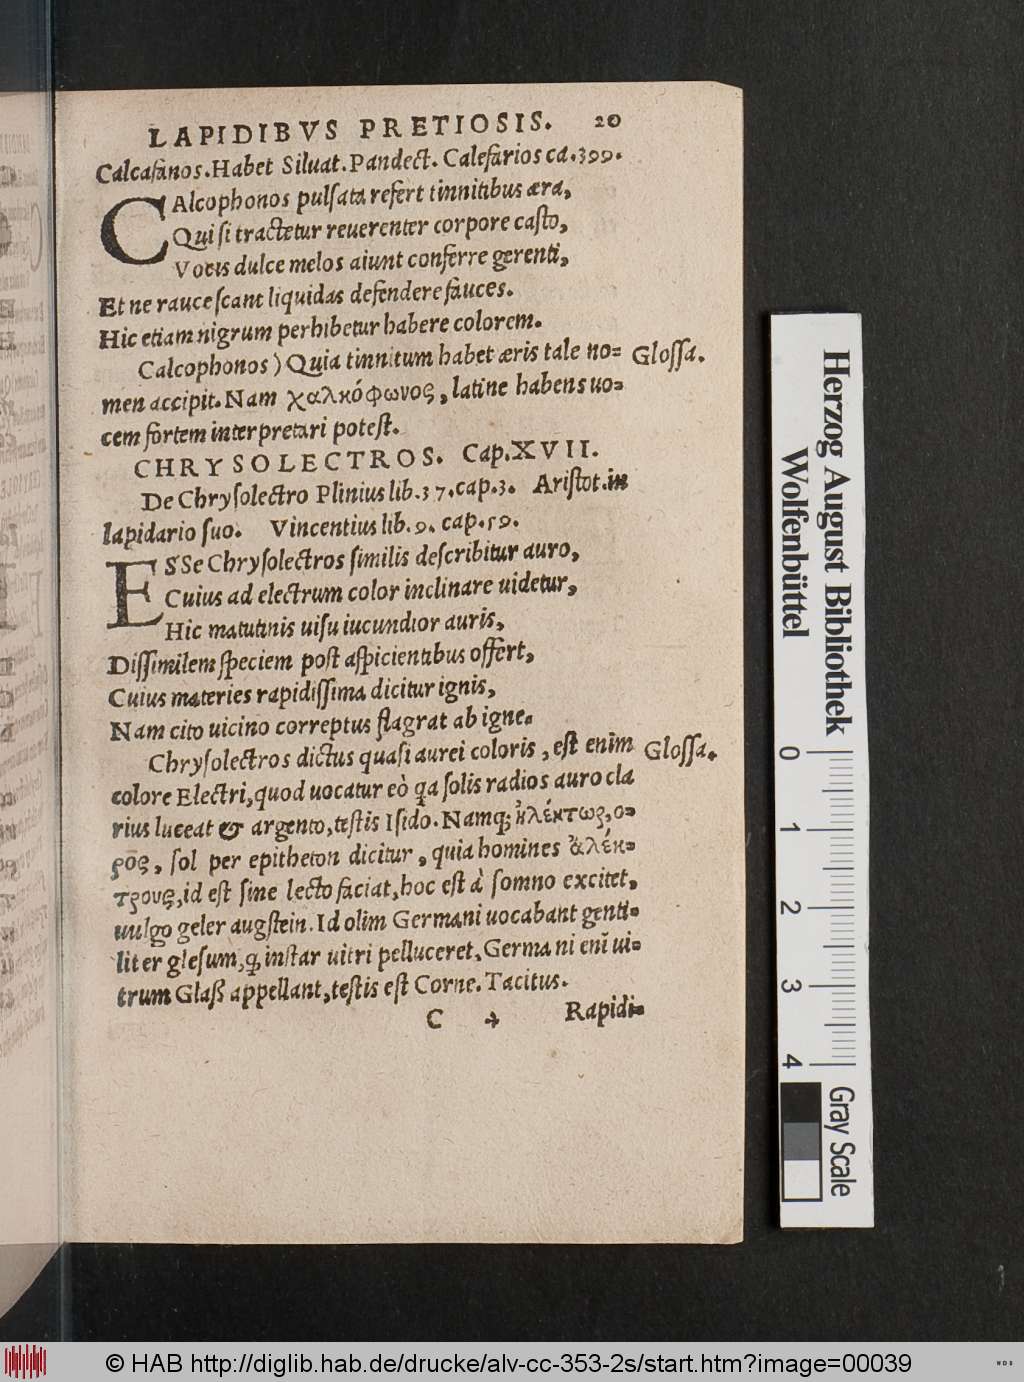 LAPIDIBVS PRETIOSIS. 20
Calcafanos. Habet Siluat. Pandect. Calefarios ca. 399.
CAlcophonos pulſata refert tinnitibus æra,
Qui ſi tractetur reuerenter corpore caſto,
Vocis dulce melos aiunt conferre gerenti,
Et ne rauceſcant liquidas defendere fauces.
Hic etiam nigrum perhibetur habere colorem.
Calcophonos) Quia tinnitum habet æris tale no= Gloſſa.
men accipit. Nam χαλκόφωνος, latine habens uo=
cem fortem interpretari poteſt.
CHRYSOLECTROS. Cap. XVII.
De Chryſolectro Plinius lib. 37. cap. 3. Ariſtot. in
lapidario ſuo. Vincentius lib. 9. cap. 59.
ESSe Chryſolectros ſimilis deſcribitur auro,
Cuius ad electrum color inclinare uidetur,
Hic matutinis uiſu iucundior auris,
Diſſimilem ſpeciem poſt aſpicientibus offert,
Cuius materies rapidiſſima dicitur ignis,
Nam cito uicino correptus flagrat ab igne.
Chryſolectros dictus quaſi aurei coloris, eſt enim Gloſſa.
colore Electri, quod uocatur eò qa ſolis radios auro cla
rius luceat & argento, teſtis Iſido. Namq; ἠλέκτως, ο=
ρο̄ς, ſol per epitheton dicitur, quia homines ἀλέκ=
τρους, id eſt ſine lecto faciat, hoc eſt à ſomno excitet,
uulgo geler augſtein. Id olim Germani uocabant genti=
liter gleſum, q inſtar uitri pelluceret, Germani enī ui=
trum Glaß appellant, teſtis eſt Corne. Tacitus.
C 4 Rapidi=
Herzog August Bibliothek
Wolfenbüttel
0 1 2 3 4
Gray Scale
© HAB http://diglib.hab.de/drucke/alv-cc-353-2s/start.htm?image=00039